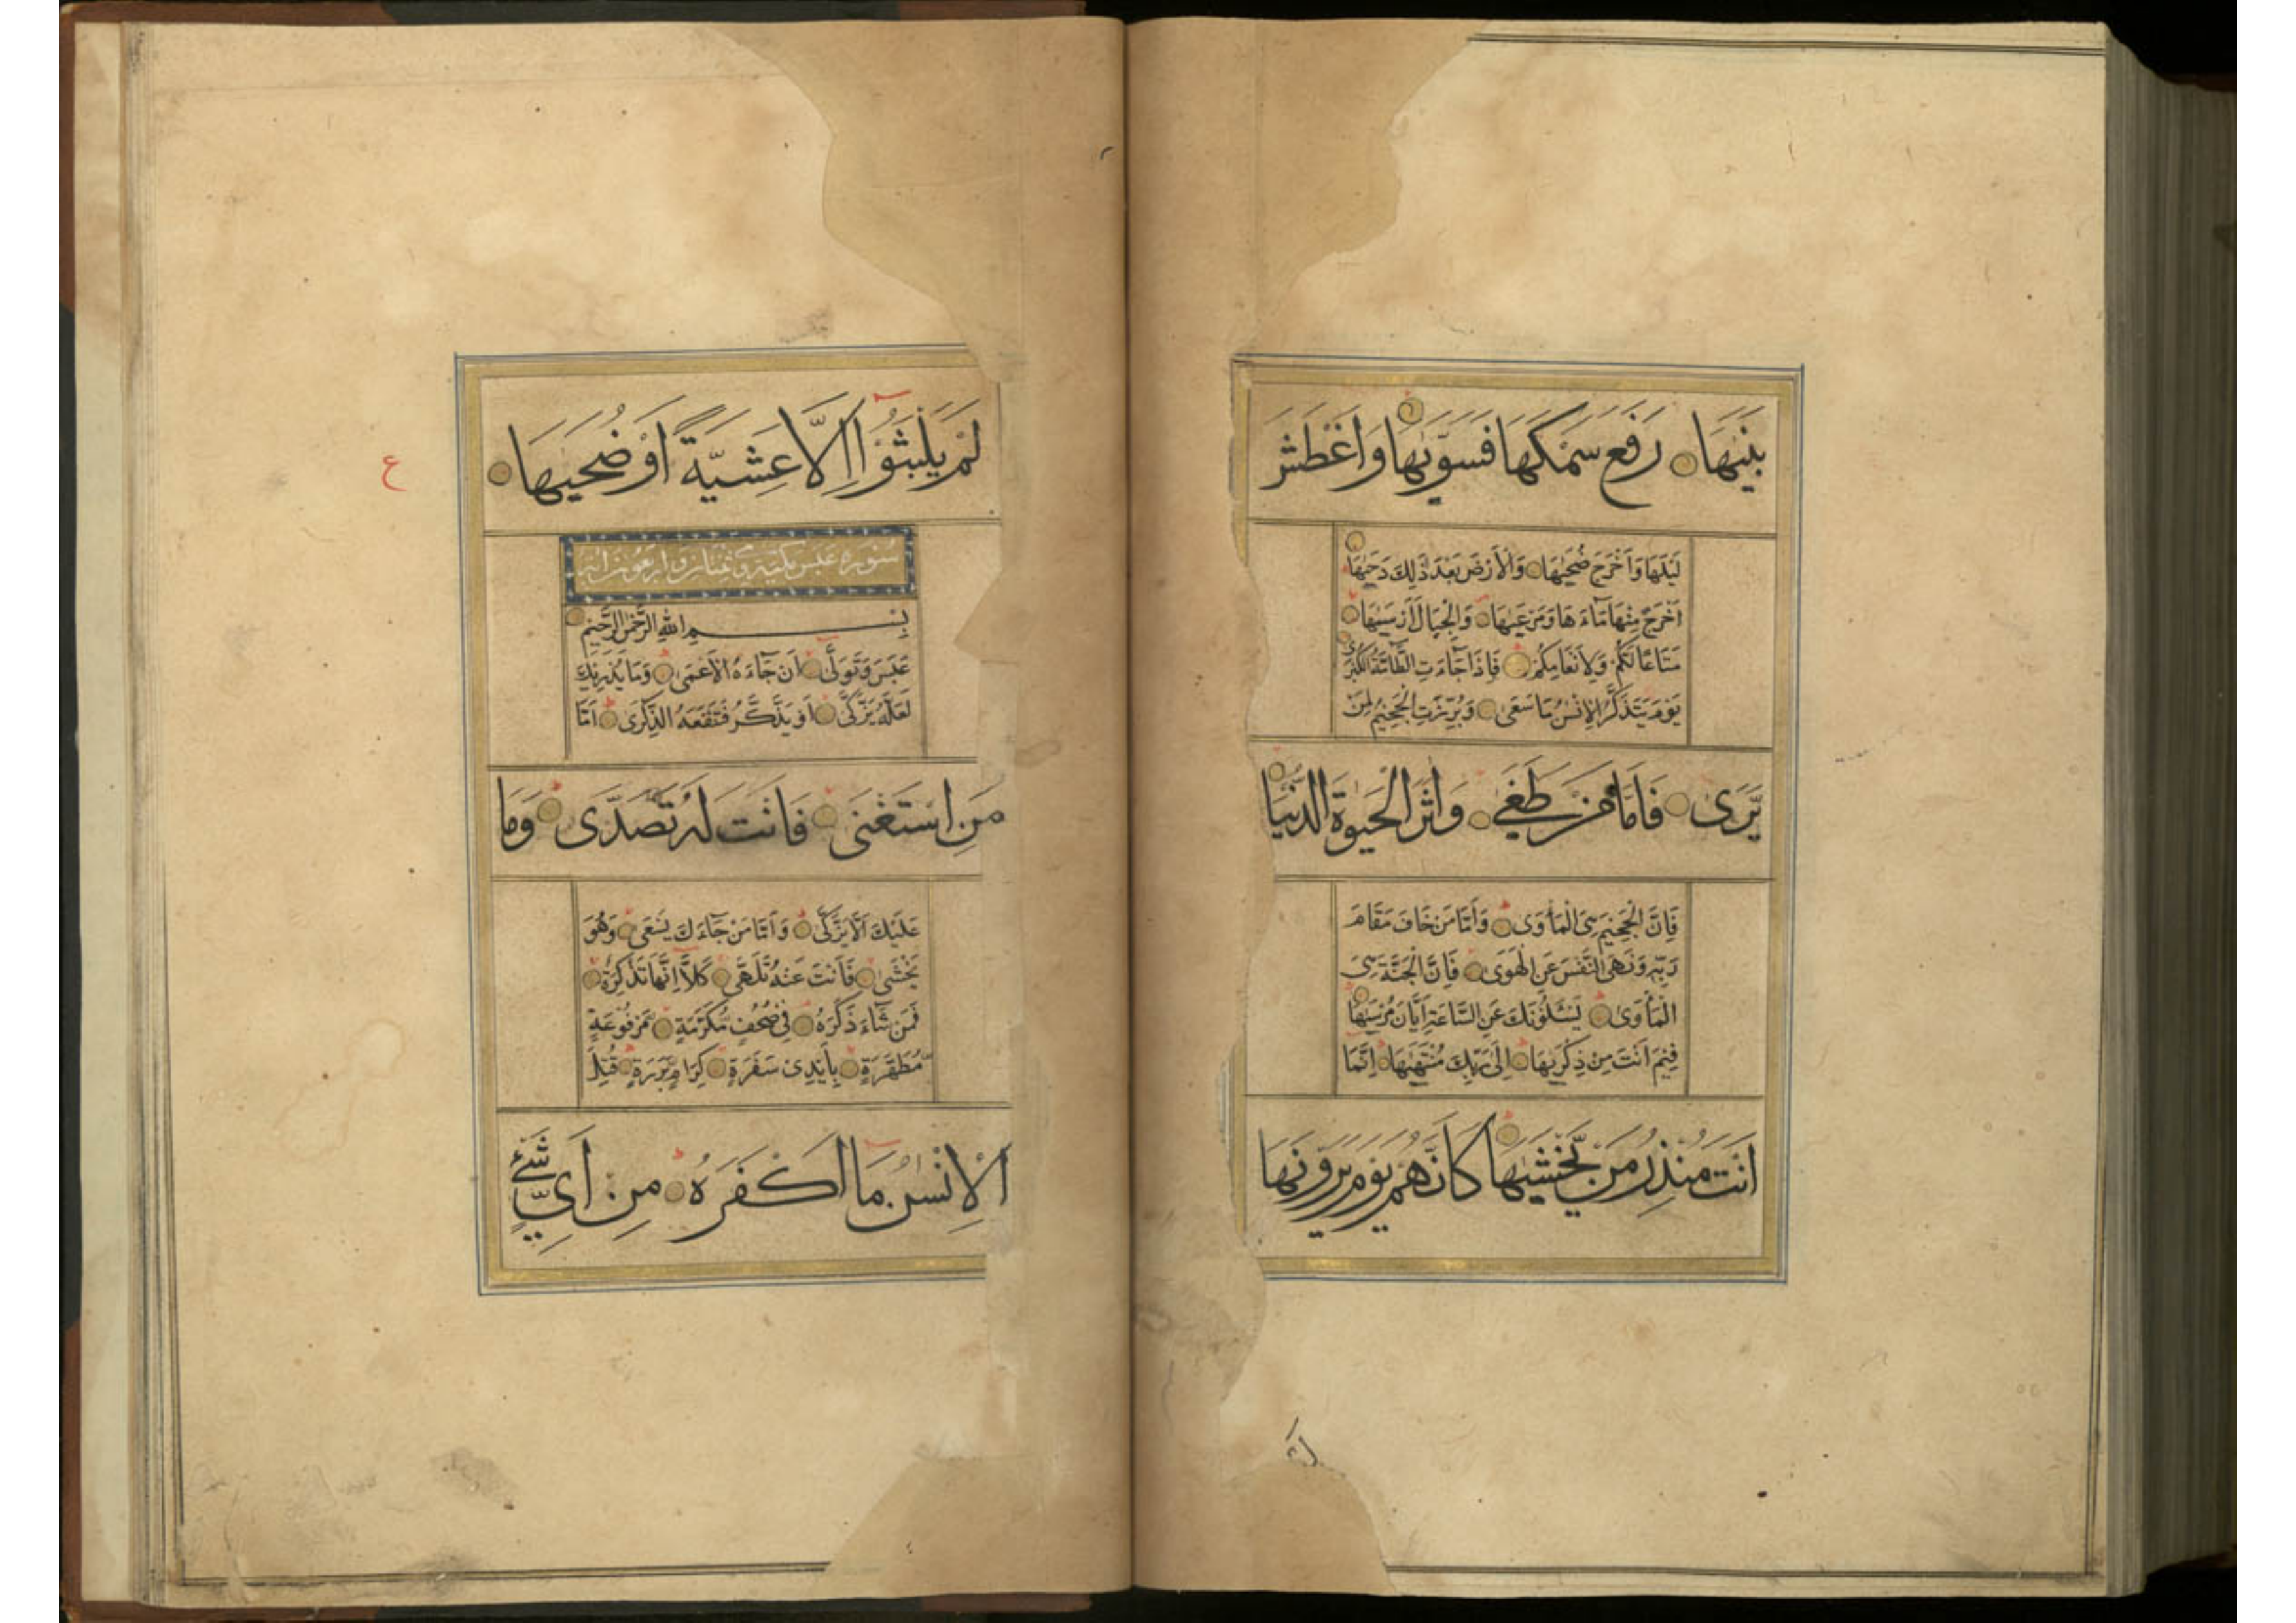 بَنٰىهَا رَفَعَ سَمْكَهَا فَسَوّٰىهَا وَاَغْطَشَ
لَيْلَهَا وَاَخْرَجَ ضُحٰىهَا وَالْاَرْضَ بَعْدَ ذٰلِكَ دَحٰىهَا
اَخْرَجَ مِنْهَا مَآءَهَا وَمَرْعٰىهَا وَالْجِبَالَ اَرْسٰىهَا
مَتَاعًا لَكُمْ وَلِاَنْعَامِكُمْ فَاِذَا جَآءَتِ الطَّآمَّةُ الْكُبْرٰى
يَوْمَ يَتَذَكَّرُ الْاِنْسٰنُ مَا سَعٰى وَبُرِّزَتِ الْجَحِيْمُ لِمَنْ
يَّرٰى فَاَمَّا مَنْ طَغٰى وَاٰثَرَ الْحَيٰوةَ الدُّنْيَا
فَاِنَّ الْجَحِيْمَ هِىَ الْمَأْوٰى وَاَمَّا مَنْ خَافَ مَقَامَ
رَبِّهٖ وَنَهَى النَّفْسَ عَنِ الْهَوٰى فَاِنَّ الْجَنَّةَ هِىَ
الْمَأْوٰى يَسْـَٔلُوْنَكَ عَنِ السَّاعَةِ اَيَّانَ مُرْسٰىهَا
فِيْمَ اَنْتَ مِنْ ذِكْرٰىهَا اِلٰى رَبِّكَ مُنْتَهٰىهَا اِنَّمَا
اَنْتَ مُنْذِرُ مَنْ يَّخْشٰىهَا كَاَنَّهُمْ يَوْمَ يَرَوْنَهَا
لَمْ يَلْبَثُوْٓا اِلَّا عَشِيَّةً اَوْ ضُحٰىهَا
ع
سورة عبس مكية وثنتان واربعون اية
بِسْمِ اللهِ الرَّحْمٰنِ الرَّحِيْمِ
عَبَسَ وَتَوَلّٰٓى اَنْ جَآءَهُ الْاَعْمٰى وَمَا يُدْرِيْكَ
لَعَلَّهُ يَزَّكّٰٓى اَوْ يَذَّكَّرُ فَتَنْفَعَهُ الذِّكْرٰى اَمَّا
مَنِ اسْتَغْنٰى فَاَنْتَ لَهُ تَصَدّٰى وَمَا
عَلَيْكَ اَلَّا يَزَّكّٰى وَاَمَّا مَنْ جَآءَكَ يَسْعٰى وَهُوَ
يَخْشٰى فَاَنْتَ عَنْهُ تَلَهّٰى كَلَّآ اِنَّهَا تَذْكِرَةٌ
فَمَنْ شَآءَ ذَكَرَهُ فِىْ صُحُفٍ مُّكَرَّمَةٍ مَّرْفُوْعَةٍ
مُّطَهَّرَةٍ بِاَيْدِىْ سَفَرَةٍ كِرَامٍ بَرَرَةٍ قُتِلَ
الْاِنْسٰنُ مَآ اَكْفَرَهُ مِنْ اَىِّ شَىْءٍ